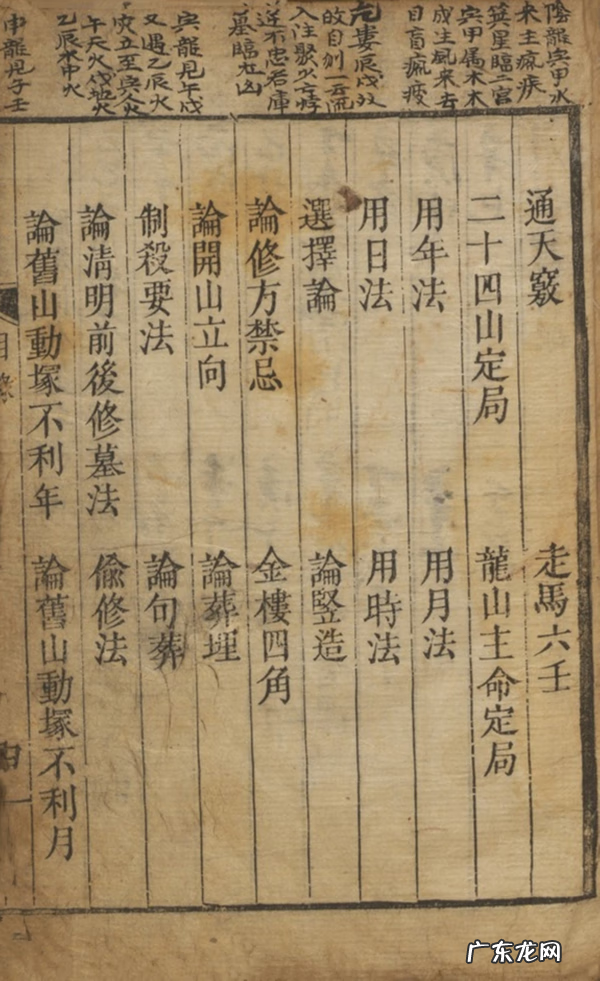 陰龍與甲水
來主瘋疾
箕星臨二宮
與甲屬木木
成生風來去
目盲瘋疲
辰戌
故自刎一云
入注聚少亡
逆不忠若庫
墓臨左凶
與龍見午戌
又遇乙辰火
灾立至與人火
午天火戌地火
乙辰水中火
申龍見子壬
通天竅
走馬六壬
二十四山定局
龍山主命定局
用年法
用月法
用日法
用時法
選擇論
論豎造
論修方禁忌
金樓四角
論開山立向
論葬埋
制殺要法
論句葬
論清明前後修墓法
偷修法
論舊山動塚不利年
論舊山動塚不利月
目錄
一
广东龙网